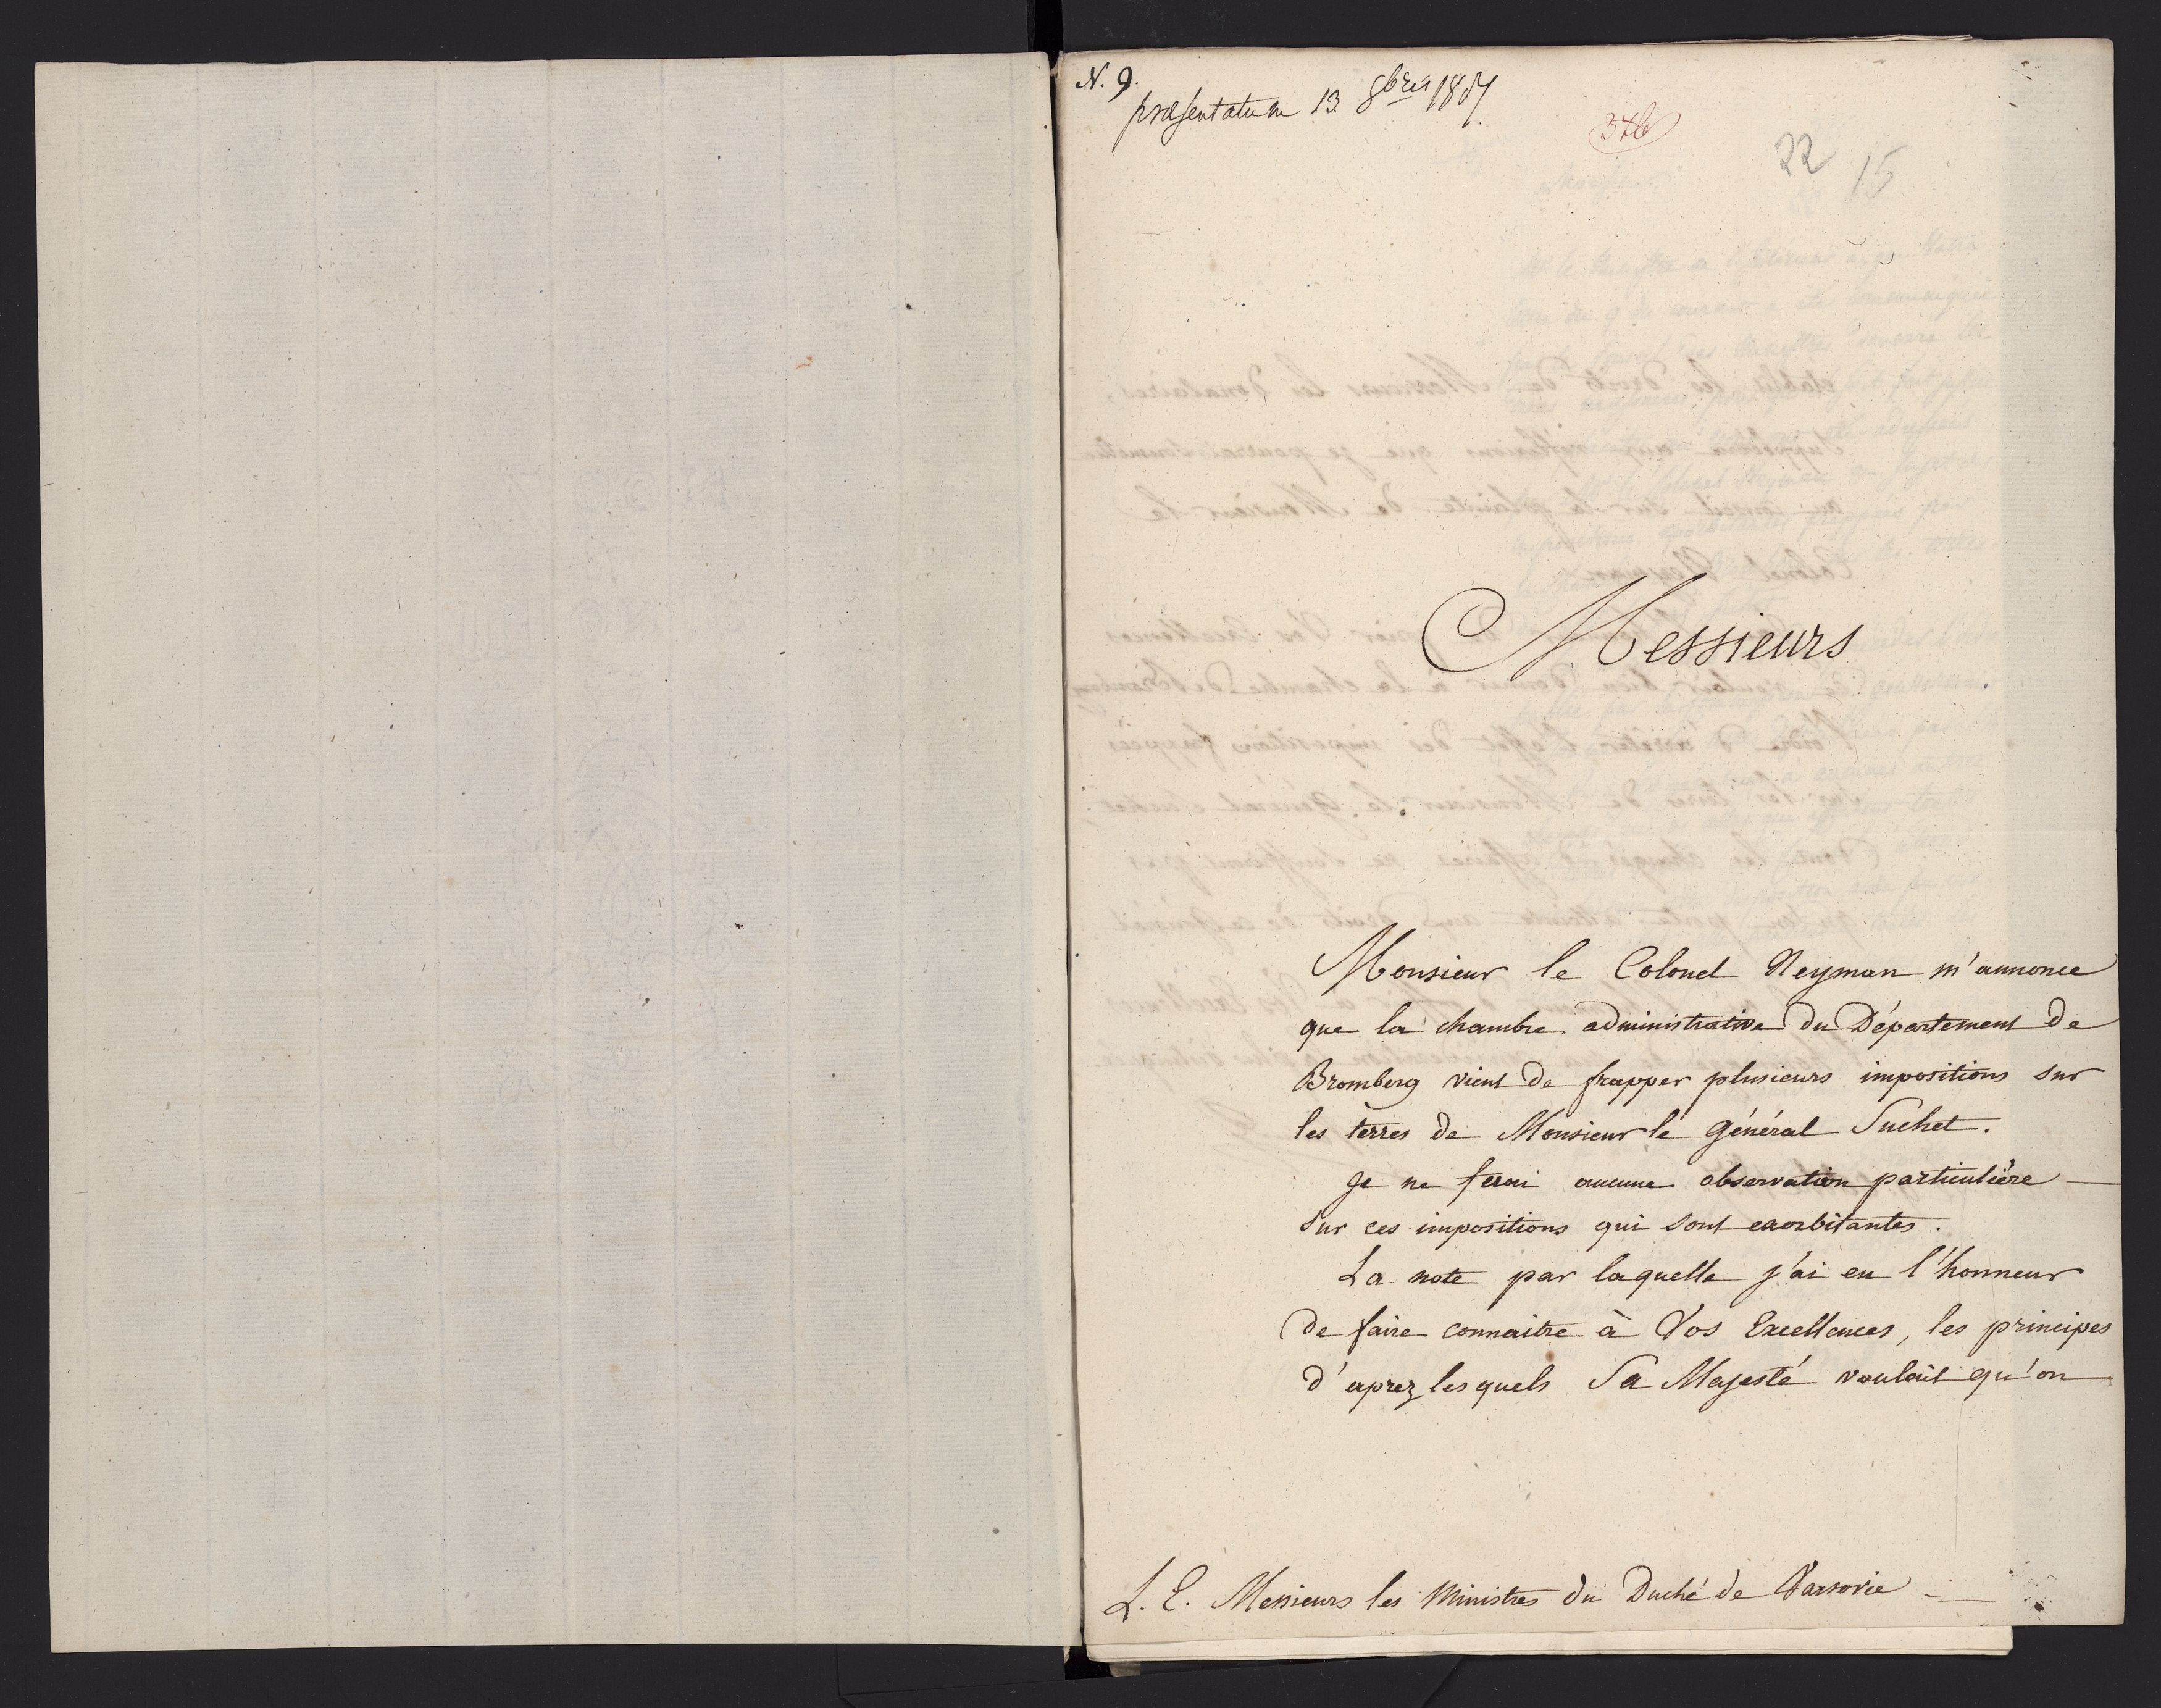 N. 9.
præsentatum 13. 8bris 1807
376
22 15
Messieurs
Monsieur le Colonel Neyman m'annonce
que la chambre administrative du Département de
Bromberg vient de frapper plusieurs impositions sur
les terres de Monsieur le Général Suchet.
Je ne ferai aucune observation particulière
sur ces impositions qui sont exorbitantes.
La note par laquelle j'ai eu l'honneur
de faire connaitre à Vos Excellences, les principes
d'aprez lesquels Sa Majesté voulait qu'on
L. E. Messieurs les Ministres du Duché de Varsovie